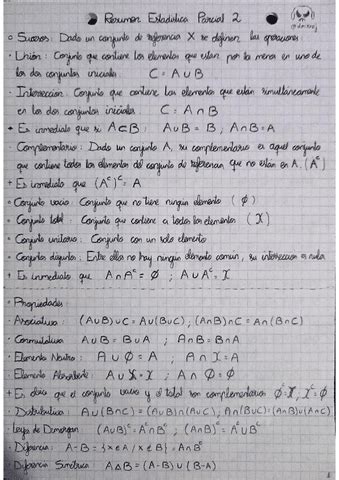 Resumen Estadística Parcial 2
Sucesos: Dado un conjunto de referencia X se definen las operaciones:
Unión: Conjunto que contiene los elementos que están por lo menos en uno de
los dos conjuntos iniciales C = A∪B
Interseccion: Conjunto que contiene los elementos que están simultáneamente
en los dos conjuntos iniciales C = A∩B
+ Es inmediato que si A⊂B: A∪B = B, A∩B = A
Complementario: Dado un conjunto A, su complementario es aquel conjunto
que contiene todos los elementos del conjunto de referencia que no están en A. (Aᶜ)
+ Es inmediato que (Aᶜ)ᶜ = A
Conjunto vacio: Conjunto que no tiene ningún elemento (∅)
Conjunto total: Conjunto que contiene a todos los elementos (X)
Conjunto unitario: Conjunto con un solo elemento
Conjuntos disjuntos: Entre ellos no hay ningún elemento comun, su interseccion es nula
+ Es inmediato que A∩Aᶜ = ∅ ; A∪Aᶜ = X
Propiedades:
Asociativa: (A∪B)∪C = A∪(B∪C), (A∩B)∩C = A∩(B∩C)
Conmutativa: A∪B = B∪A ; A∩B = B∩A
Elemento Neutro: A∪∅ = A ; A∩X = A
Elemento Absorbente: A∪X = X ; A∩∅ = ∅
+ Es claro que el conjunto vacio y el total son complementarios ∅ᶜ = X, Xᶜ = ∅
Distributiva: A∪(B∩C) = (A∪B)∩(A∪C), A∩(B∪C) = (A∩B)∪(A∩C)
Leyes de Dimorgan: (A∪B)ᶜ = Aᶜ∩Bᶜ ; (A∩B)ᶜ = Aᶜ∪Bᶜ
Diferencia: A-B = {x∈A / x∉B} = A∩Bᶜ
Diferencia Simétrica: A△B = (A-B)∪(B-A)